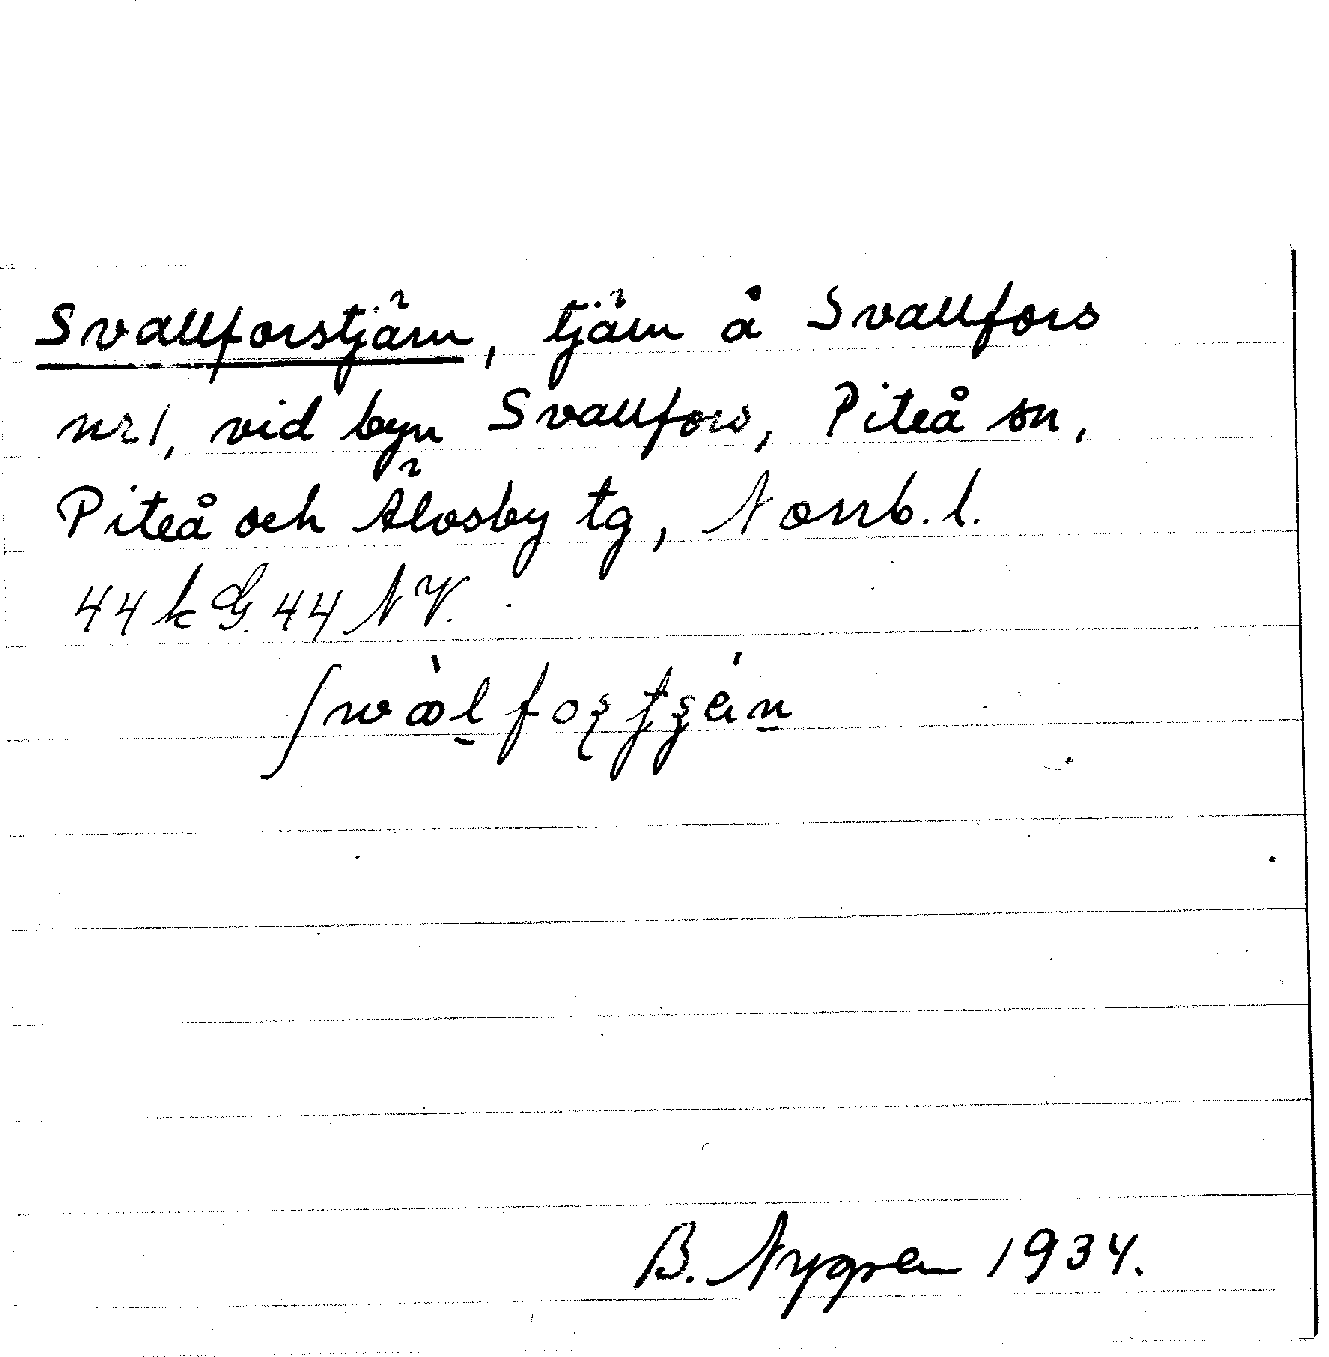 Svallforstjärn, tjärn å Svallfors
nr 1, vid byn Svallfors, Piteå sn,
Piteå och Älvsby tg, Norrb. l.
44 k G. 44 NV.
B. Nygren 1934.